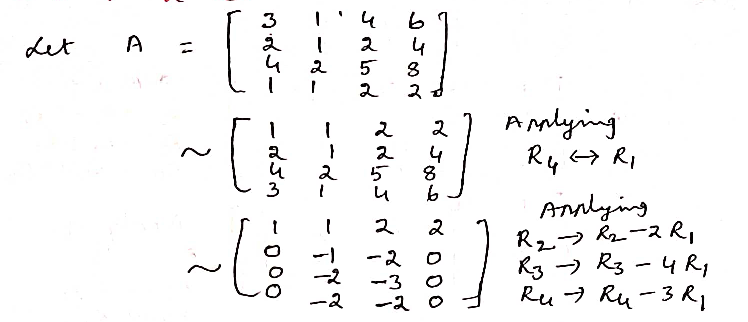 Let A = [ 3 1 4 6
2 1 2 4
4 2 5 8
1 1 2 2 ]
~ [ 1 1 2 2
2 1 2 4
4 2 5 8
3 1 4 6 ] Applying
R4 ↔ R1
~ [ 1 1 2 2
0 -1 -2 0
0 -2 -3 0
0 -2 -2 0 ] Applying
R2 → R2 - 2 R1
R3 → R3 - 4 R1
R4 → R4 - 3 R1